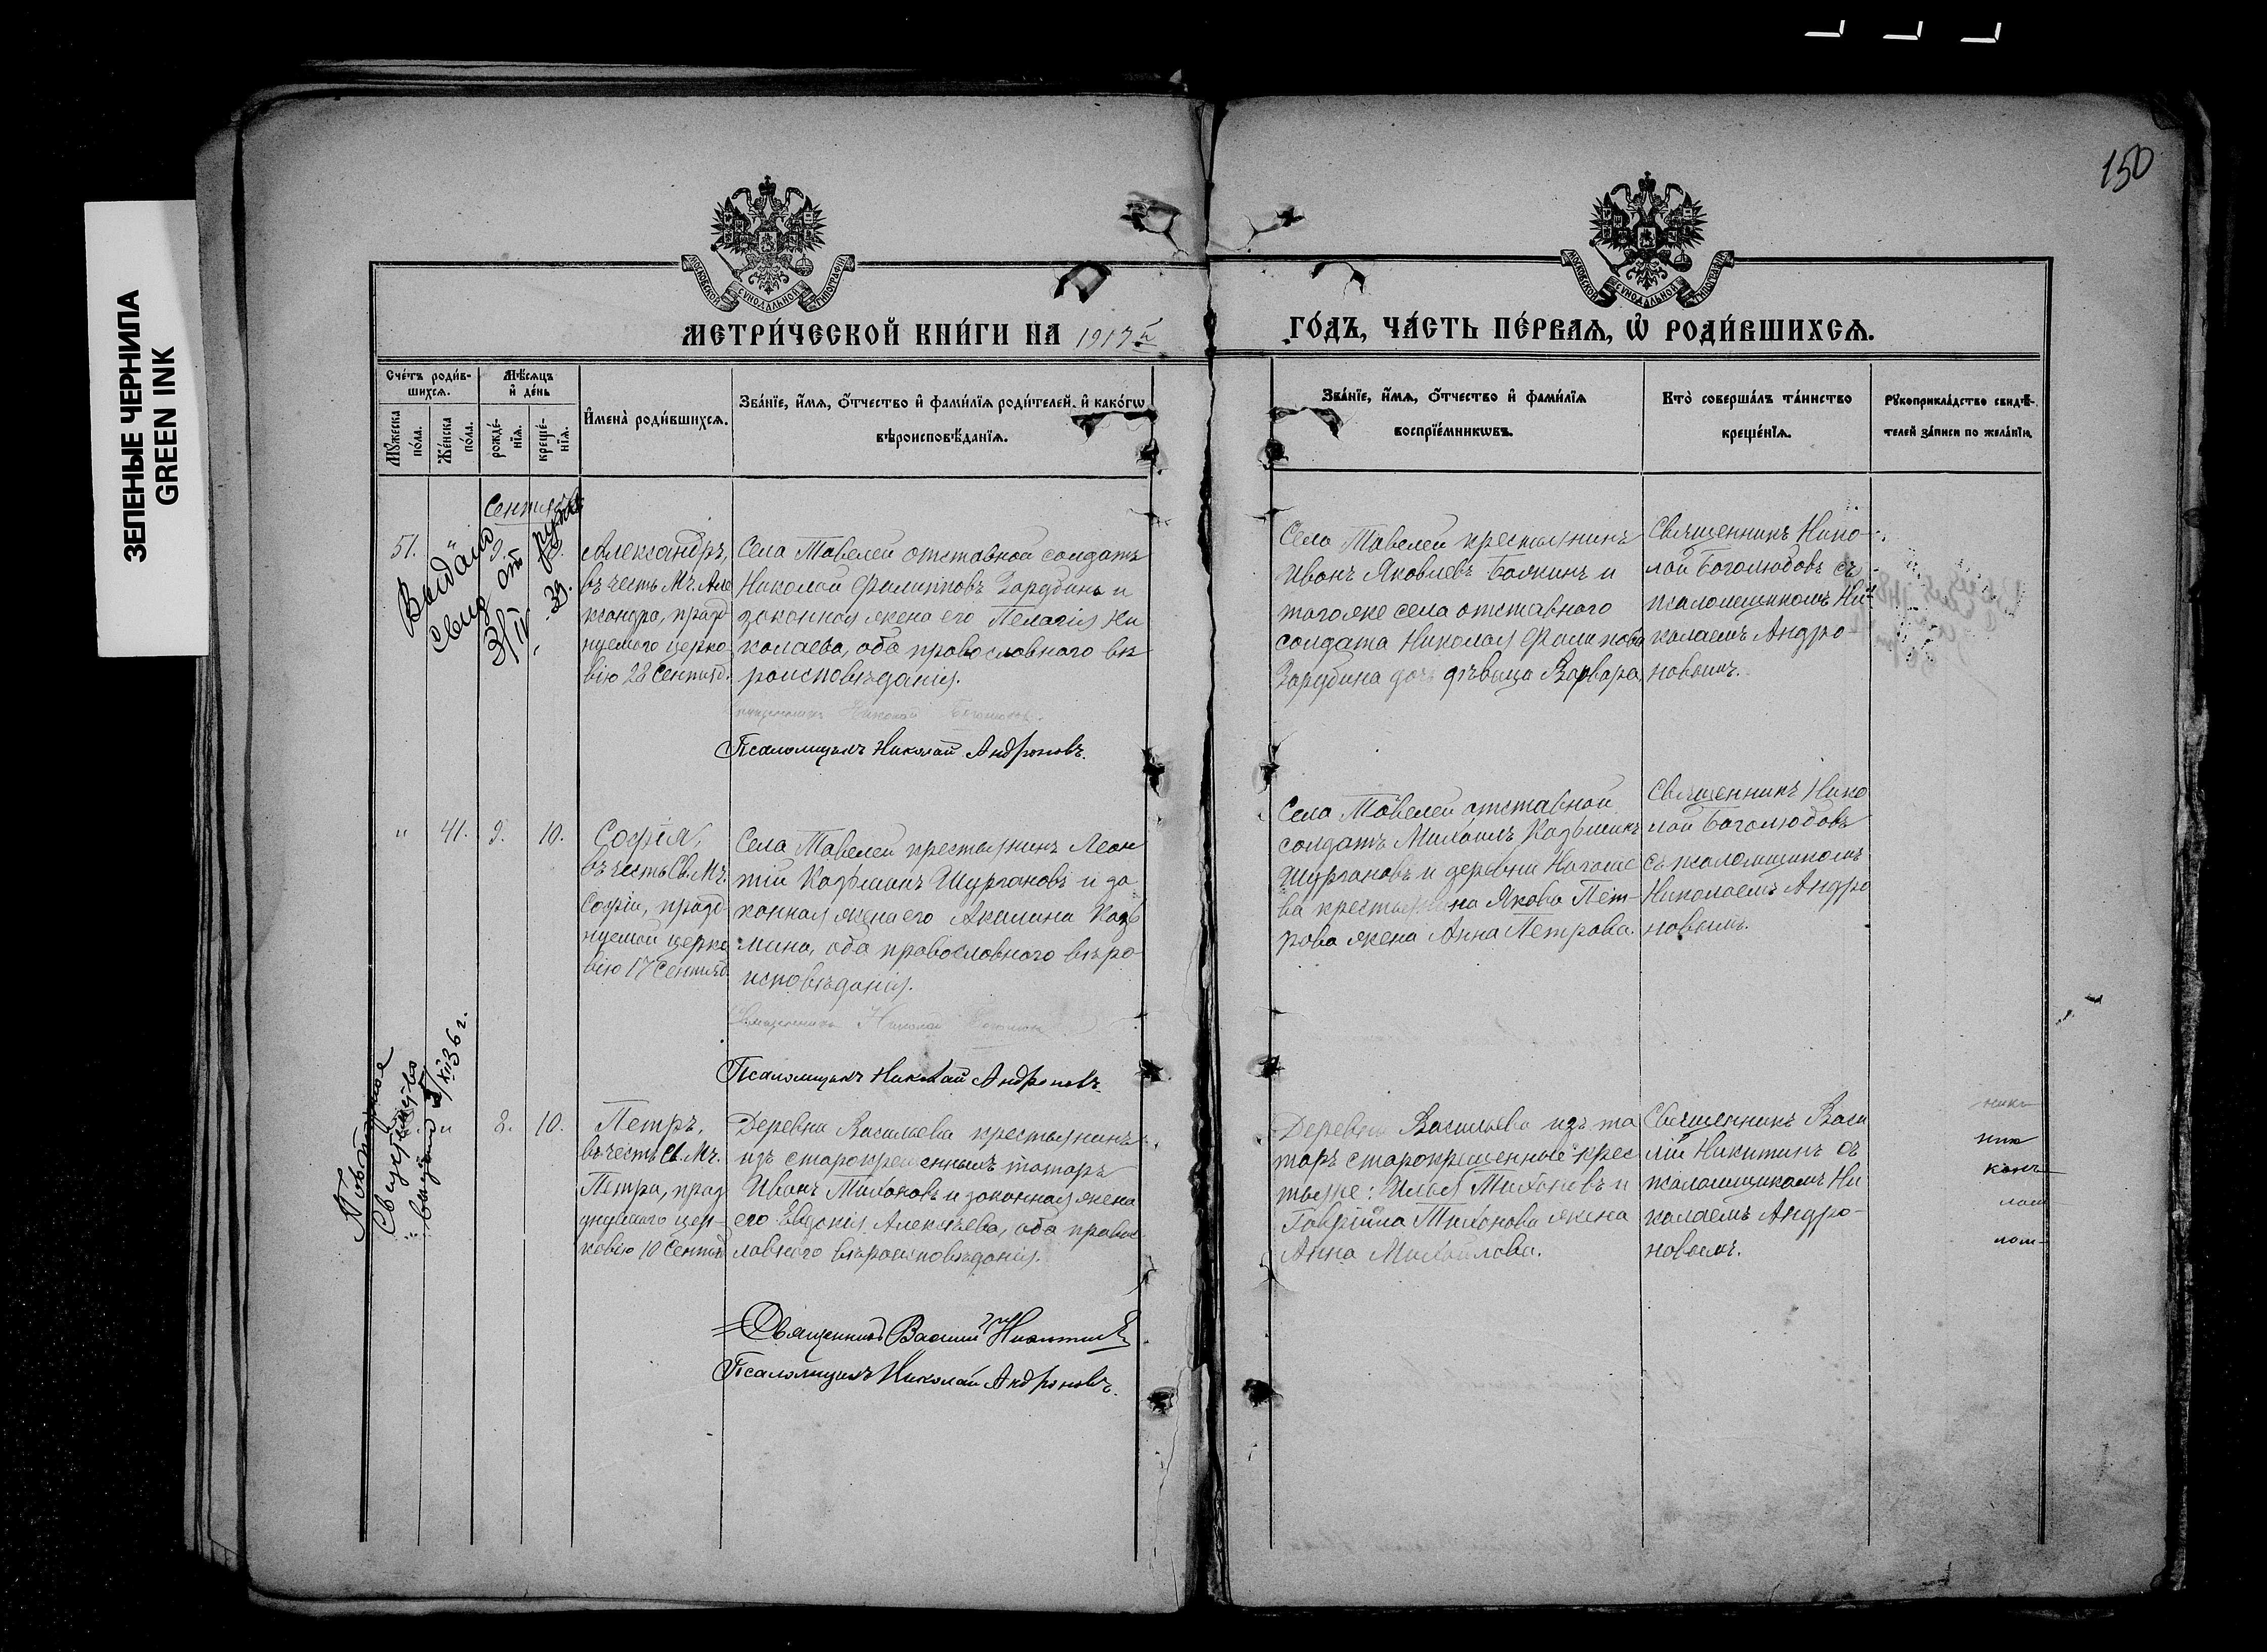 150
ЗЕЛЕНЫЕ ЧЕРНИЛА
GREEN INK
МОСКОВСКОЙ СѴНОДАЛЬНОЙ ТИПОГРАФІИ
МОСКОВСКОЙ СѴНОДАЛЬНОЙ ТИПОГРАФІИ
МЕТРИ́ЧЕСКОЙ КНИ́ГИ НА 1917й
ГО́ДЪ, ЧА́СТЬ ПЕ́РВАЯ, Ѿ РОДИ́ВШИХСЯ.
Сче́тъ роди́в-
шихся.
Мѣ́сяцъ
и҆ де́нь
Мꙋ́жеска
по́ла.
Же́нска
по́ла.
рожде́-
нїя.
креще́-
нїя.
И҆мена̀ роди́вшихся.
Зва́нїе, и҆́мя, ѻ҆́тчество и҆ фами́лїя роди́телей, и҆ како́гѡ
вѣроисповѣ́данїя.
Зва́нїе, и҆́мя, ѻ҆́тчество и҆ фами́лїя
воспрїе́мникѡвъ.
Кто̀ соверша́лъ та́инство
креще́нїя.
Рꙋкоприкла́дство свидѣ́-
телей за́писи по жела́нїю.
Сентябрь
51. " 9.
Александръ,
въ честь Мч. Але
ксандра, празд
нуемого церко
вію 28 Сентяб.
Села Тавелей отставной солдатъ
Николай Филипповъ Зарубинъ и
законная жена его Пелагія Ни
колаева, оба православного вѣ
роисповѣданія.
Священникъ Николай Боголюбовъ.
Псаломщикъ Николай Андроновъ.
Села Тавелей крестьянинъ
Иванъ Яковлевъ Баякинъ и
тогоже села отставного
солдата Николая Филипова
Зарубина дочь дѣвица Варвара
Священникъ Нико-
лай Боголюбовъ съ
псаломщикомъ Ни-
колаемъ Андро-
новымъ.
Выдано
свид от
3/IV 39.
" 41. 9. 10.
Софія,
въ честь Св. Мч.
Софіи, празд
нуемой церко
вію 17 Сентяб
Села Тавелей крестьянинъ Леон
тій Козьминъ Шургановъ и за
конная жена его Акилина Козь
мина, оба православного вѣро
исповѣданія.
Священникъ Николай Боголюбовъ
Псаломщикъ Николай Андроновъ.
Села Тавелей отставной
солдатъ Михаилъ Козьминъ
Шургановъ и деревни
крестьянина Якова Пет-
рова жена Анна Петрова.
Священникъ Нико
лай Боголюбовъ
съ псаломщикомъ
Николаемъ Андро
новымъ.
Повторное
Свидетельство
выдано
XII 36 г.
" 8. 10.
Петръ,
въ честь Св. Мч.
Петра, празд
днуемого цер-
ковію 10 Сентяб
Деревни Васильева крестьянинъ
изъ старокрещенныхъ татаръ
Иванъ Тихоновъ и законная жена
его Евдокія Алексѣева, оба правос
лавного вѣроисповѣданія.
Священникъ Василій Никитинъ
Псаломщикъ Николай Андроновъ.
Деревни Васильева изъ та
таръ старокрещенные крес
тьяне: Илья Тихоновъ и
Гавріила Тихонова жена
Анна Михайлова.
Священникъ Васи
лій Никитинъ съ
псаломщикомъ Ни
колаемъ Андро-
новымъ.